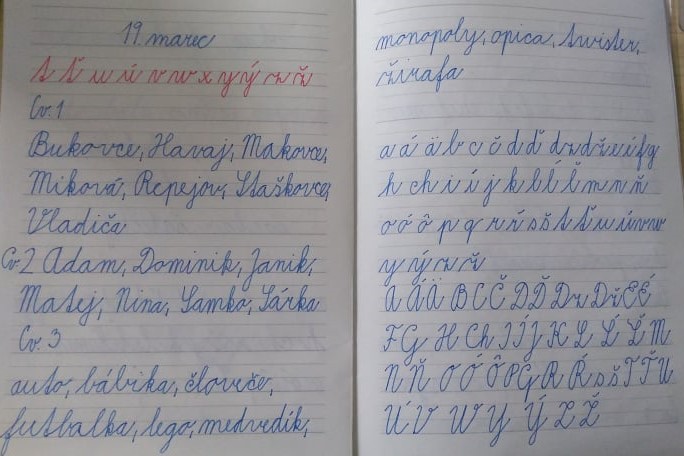 19. marec
t ť u ú v w x y ý z ž
Cv. 1
Bukovce, Havaj, Makovce,
Miková, Repejov, Staškovce,
Vladiča
Cv. 2 Adam, Dominik, Janik,
Matej, Nina, Samko, Sárka
Cv. 3
auto, bábika, človeče,
futbalka, lego, medvedík,
monopoly, opica, twister,
žirafa
a á ä b c č d ď dz dž e é f g
h ch i í j k l ĺ ľ m n ň
o ó ô p q r ŕ s š t ť u ú v w
y ý z ž
A Á Ä B C Č D Ď Dz Dž E É
F G H Ch I Í J K L Ĺ Ľ M
N Ň O Ó Ô P Q R Ŕ S Š T Ť U
Ú V W Y Ý Z Ž